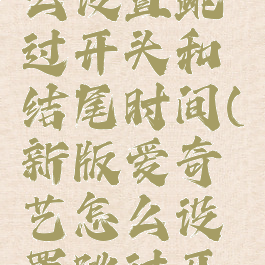 么设置跳
过开头和
结尾时间(
新版爱奇
艺怎么设
置跳过开